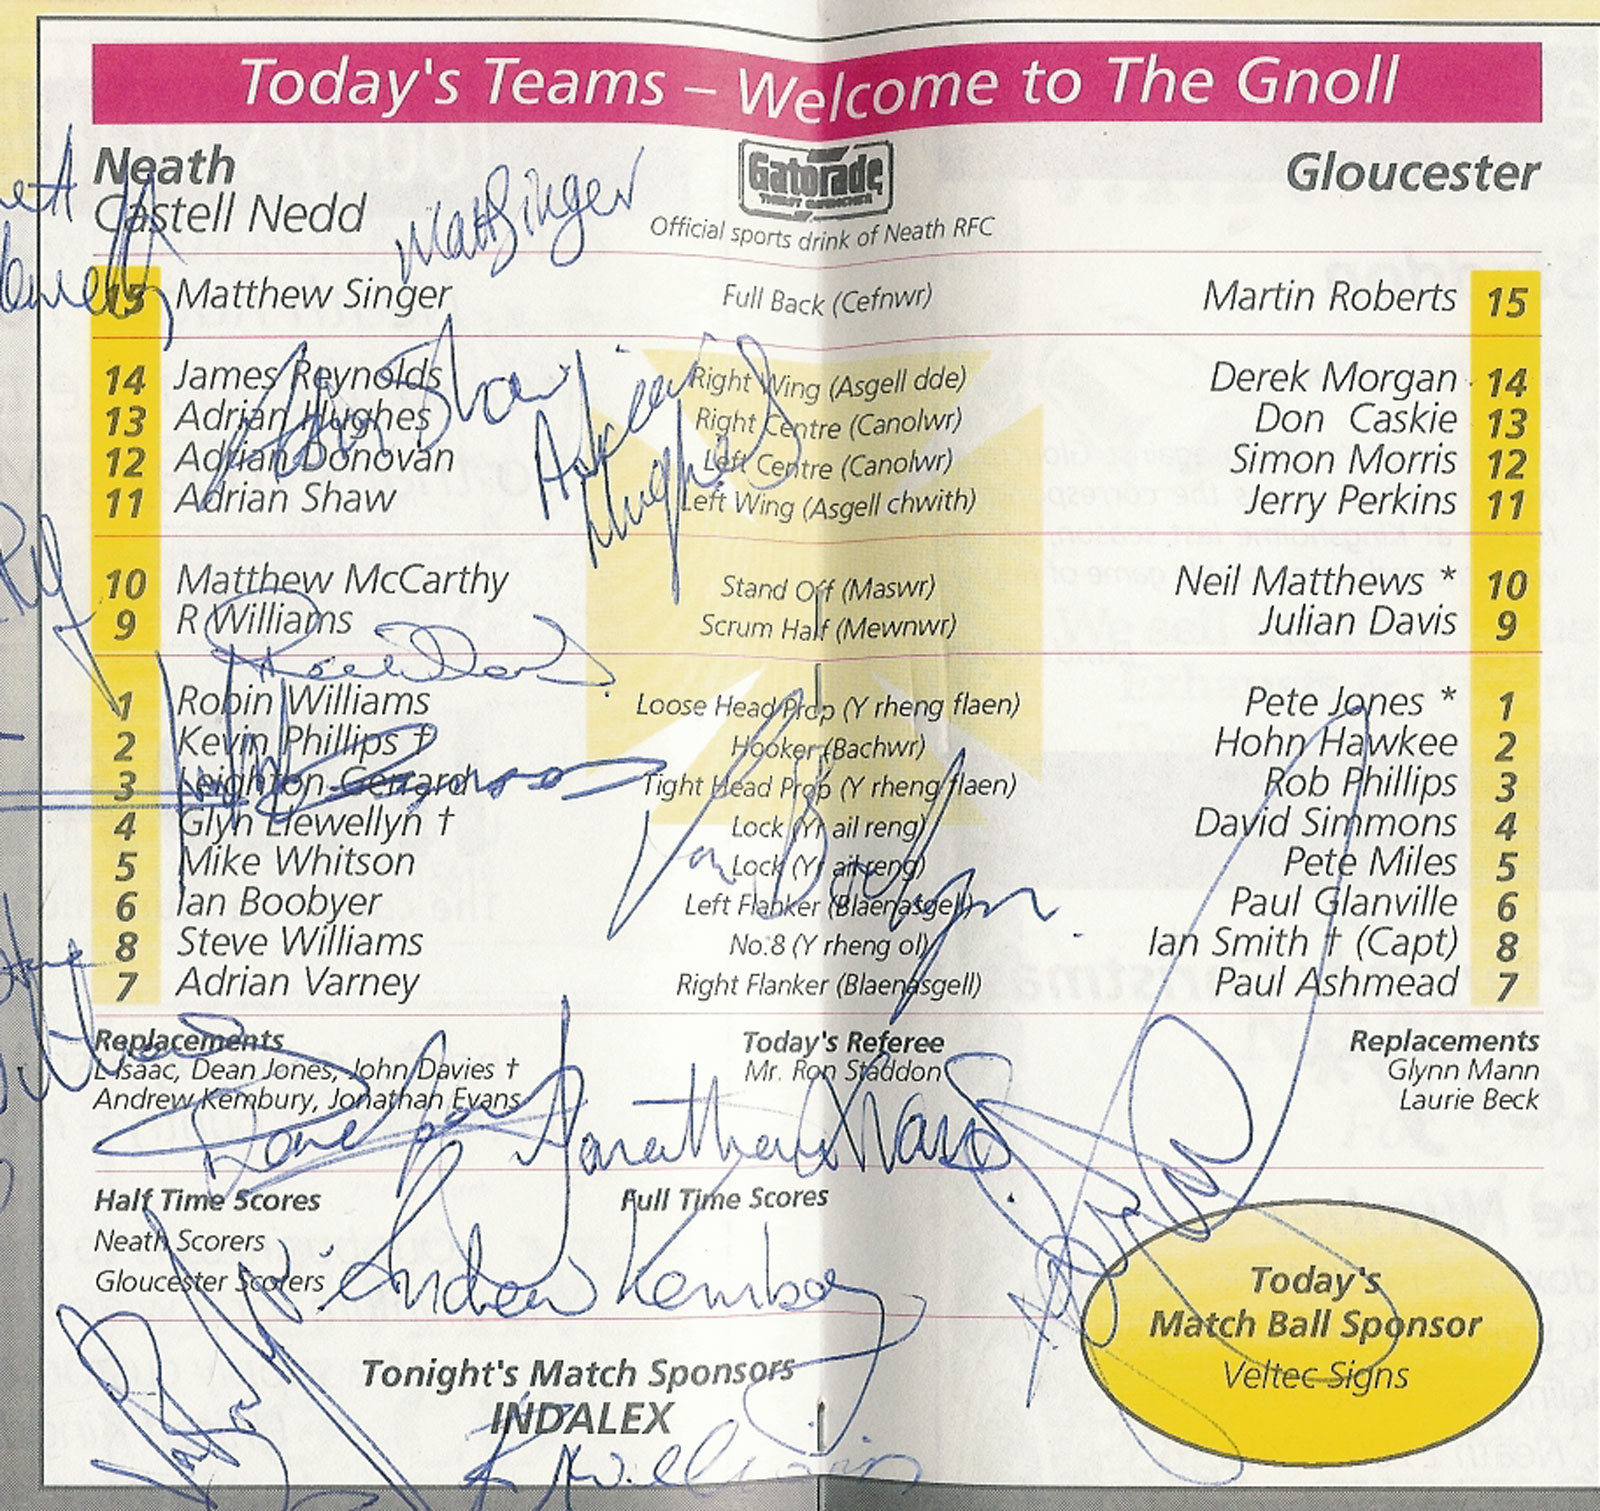 Today's Teams – Welcome to The Gnoll
Neath
Castell Nedd
Gatorade
THIRST QUENCHER
Official sports drink of Neath RFC
Gloucester
Matt Singer
15 Matthew Singer Full Back (Cefnwr) Martin Roberts 15
14 James Reynolds Right Wing (Asgell dde) Derek Morgan 14
13 Adrian Hughes Right Centre (Canolwr) Don Caskie 13
12 Adrian Donovan Left Centre (Canolwr) Simon Morris 12
11 Adrian Shaw Left Wing (Asgell chwith) Jerry Perkins 11
10 Matthew McCarthy Stand Off (Maswr) Neil Matthews * 10
9 R Williams Scrum Half (Mewnwr) Julian Davis 9
1 Robin Williams Loose Head Prop (Y rheng flaen) Pete Jones * 1
2 Kevin Phillips † Hooker (Bachwr) Hohn Hawkee 2
3 Leighton Gerrard Tight Head Prop (Y rheng flaen) Rob Phillips 3
4 Glyn Llewellyn † Lock (Yr ail reng) David Simmons 4
5 Mike Whitson Lock (Yr ail reng) Pete Miles 5
6 Ian Boobyer Left Flanker (Blaenasgell) Paul Glanville 6
8 Steve Williams No.8 (Y rheng ol) Ian Smith † (Capt) 8
7 Adrian Varney Right Flanker (Blaenasgell) Paul Ashmead 7
Replacements
L Isaac, Dean Jones, John Davies †
Andrew Kembury, Jonathan Evans
Today's Referee
Mr. Ron Staddon
Replacements
Glynn Mann
Laurie Beck
Jonathan Evans
Half Time Scores Full Time Scores
Neath Scorers
Gloucester Scorers
Andrew Kembery
Tonight's Match Sponsors
INDALEX
Today's
Match Ball Sponsor
Veltec Signs